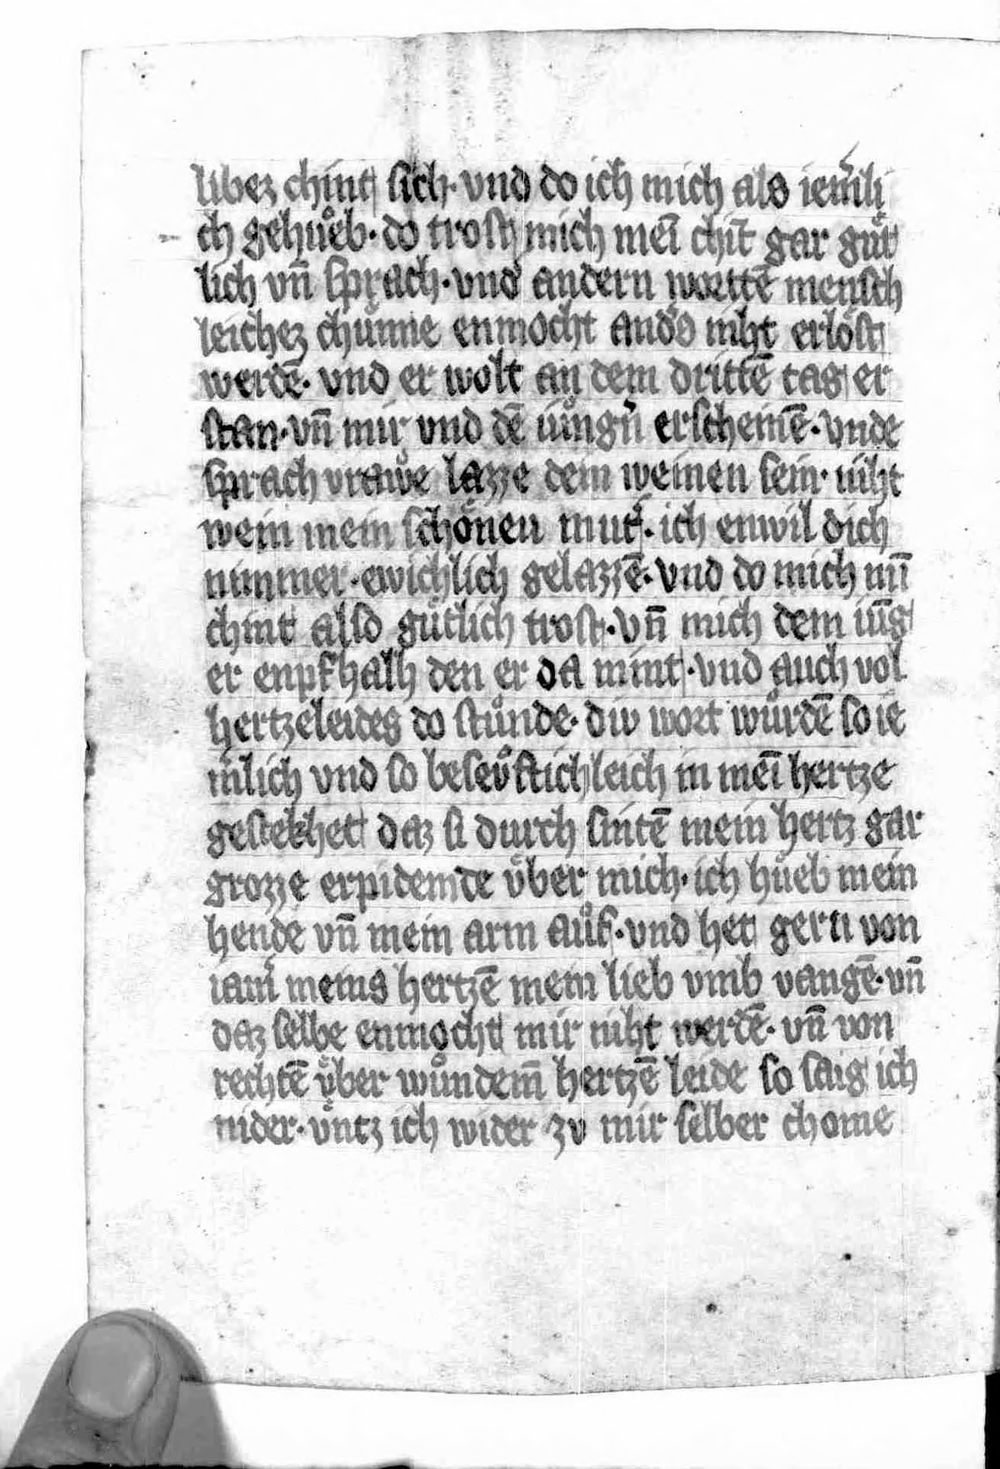 libez chint sich · vnd do ich mich als iem̄li
ch gehůeb · do trost mich mei᷄ chi᷄t gar gůt
lich vn̄ sprach · vnd andern wortte᷄ mensch
leichez chůnne enmocht and͛s niht erlöst
werde᷄ · vnd er wolt an dem dritte᷄ tag er
stan · vn̄ mir vnd de᷄ iůngn̄ erscheine᷄ · vnde
sprach vrawͤe lazze dem weinen sein · niht
wein mein schönen mut͛ · ich enwil dich
nimmer · ewichlich gelazze᷄ · vnd do mich mı̄
chint also gůtlich trost · vn̄ mich dem iūg
er enpfhalh den er da mint · vnd auch vol
hertzeleides do stůnde · div wort wůrde᷄ so ie
m̄lich vnd so beseůftichleich in mei᷄ hertze
gestekhet daz si durch sinte᷄ mein hertz gar
grozze erpidemde vͤber mich · ich hůeb mein
hende vn̄ mein arm auͤf · vnd het gern von
iam͛ meins hertze᷄ mein lieb vmb vange᷄ · vn̄
daz selbe enmocht mir niht werde᷄ · vn̄ von
rechte᷄ vͤber wůndem̄ hertze᷄ leide so saig ich
nider · vͤntz ich wider zv mir selber chome